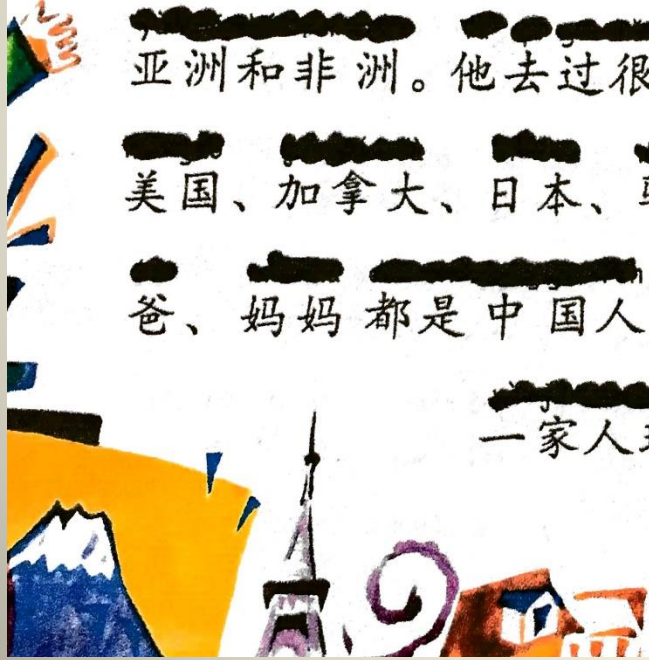 亚洲和非洲。他去过很
美国、加拿大、日本、
爸、妈妈都是中国人
一家人